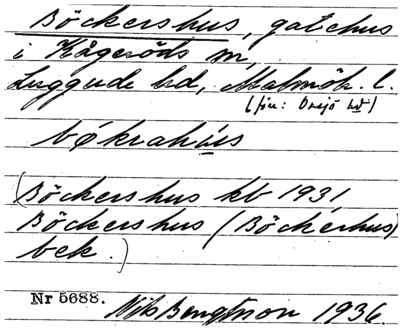 Böckershus, gatehus
i Kågeröds sn,
Luggude hd, Malmöh. l.
(för: Onsjö hd)
bøkrahús
(Böckershus kb 1931
Böckershus (Böckerhus)
bek.)
Nr 5688. Nils Bengtsson 1936.